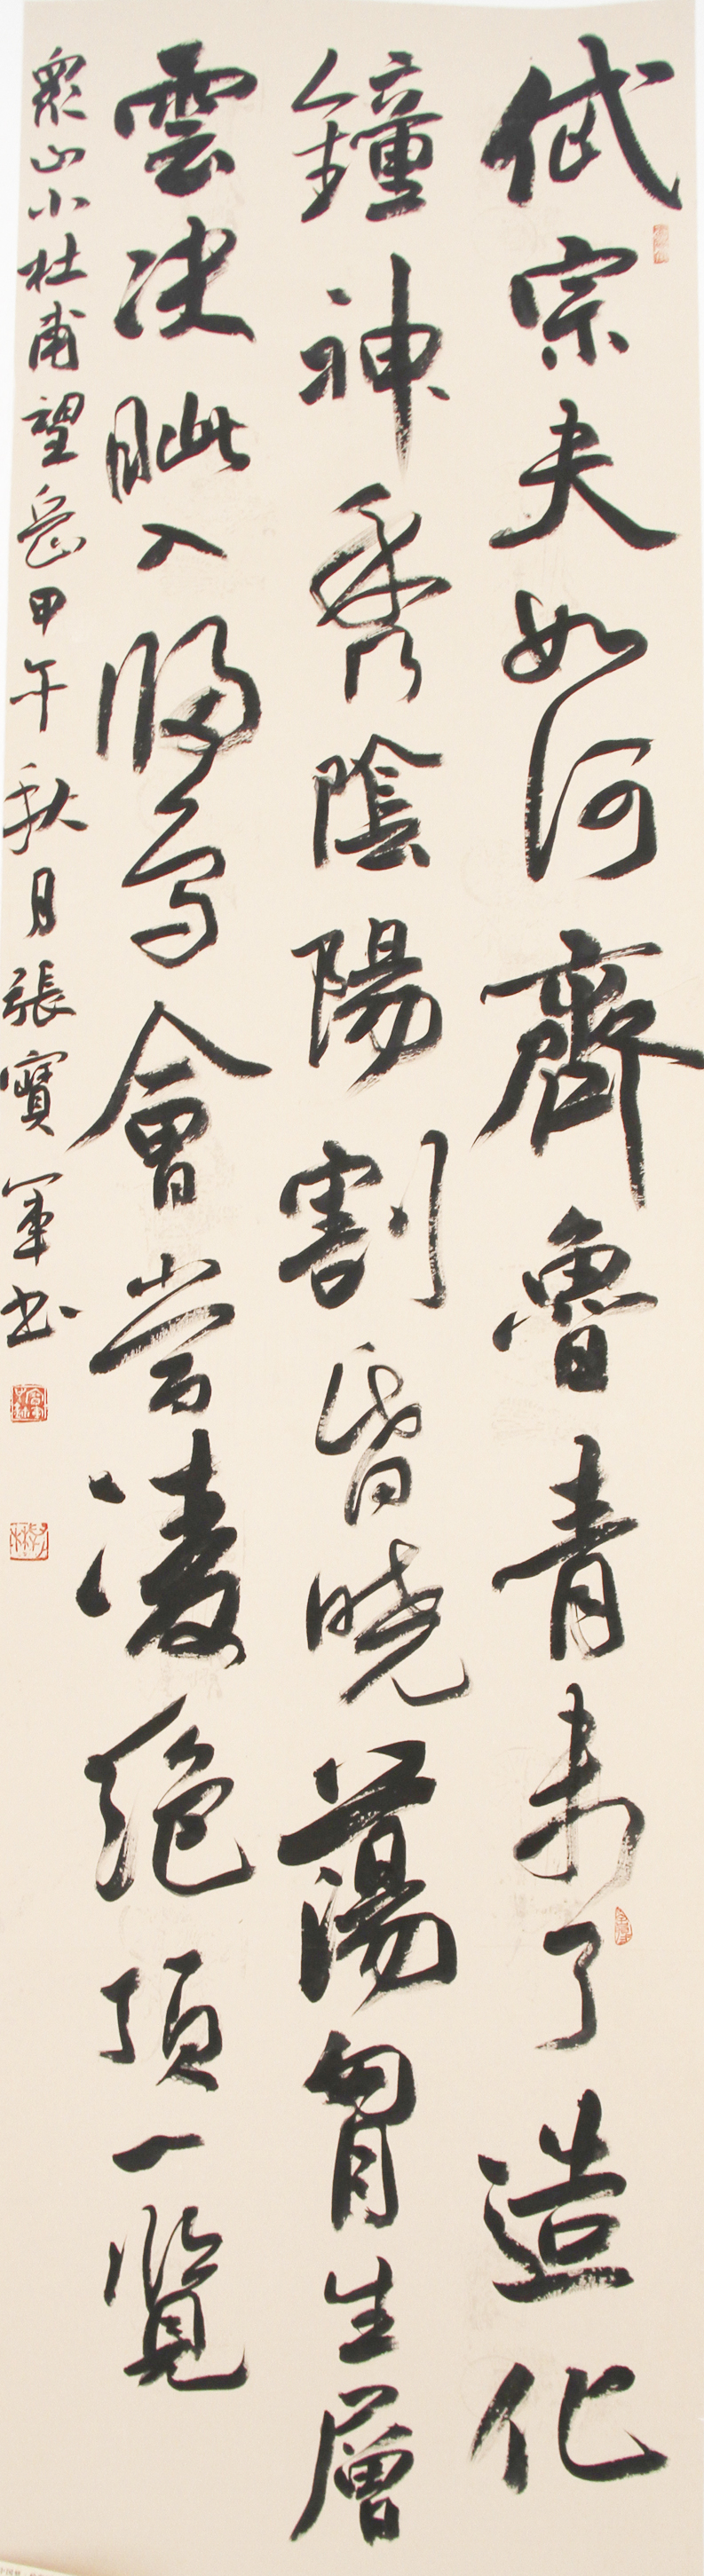 岱宗夫如何齊魯青未了造化
鐘神秀陰陽割昏曉蕩胷生層
雲决眦入歸鳥會當凌絶頂一覽
衆山小杜甫望岳甲午秋月張寶軍书